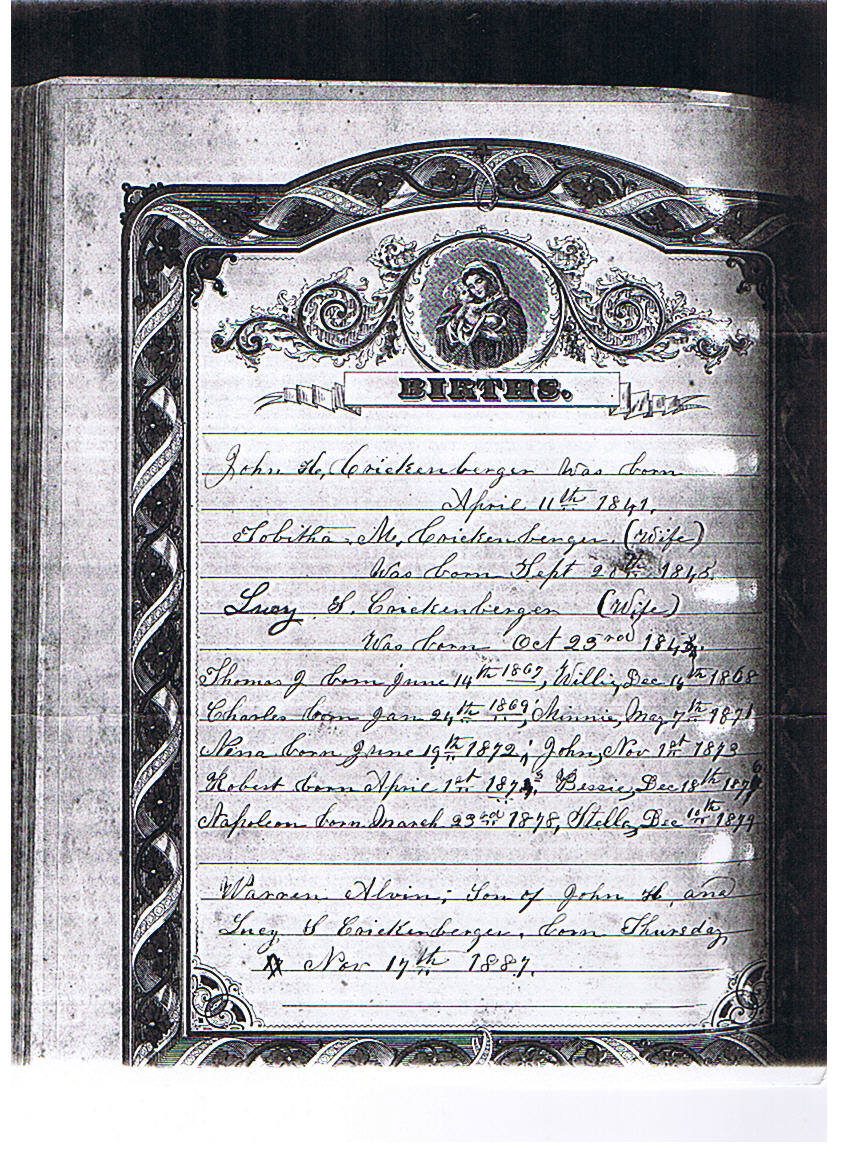 BIRTHS.
John H, Crickenberger was born
April 11th 1841.
Tobitha. M. Crickenberger. (Wife)
Was born Sept 20th 1845.
Lucy S. Crickenberger (Wife)
Was born Oct 23rd
Thomas J born June 14th 1867, Willie, Dec 1868
Charles born Jan 24th 1869; Minnie, May 7th 1871
Nina born June 19th 1872; John, Nov 1st 1873
Robert born April 1st Bessie, Dec 18th
Napoleon born March 23rd 1878, Stella, Dec 10th 1879
Warren Alvin; Son of John H, and
Lucy S Crickenberger, born Thursday
Nov 17th 1887.